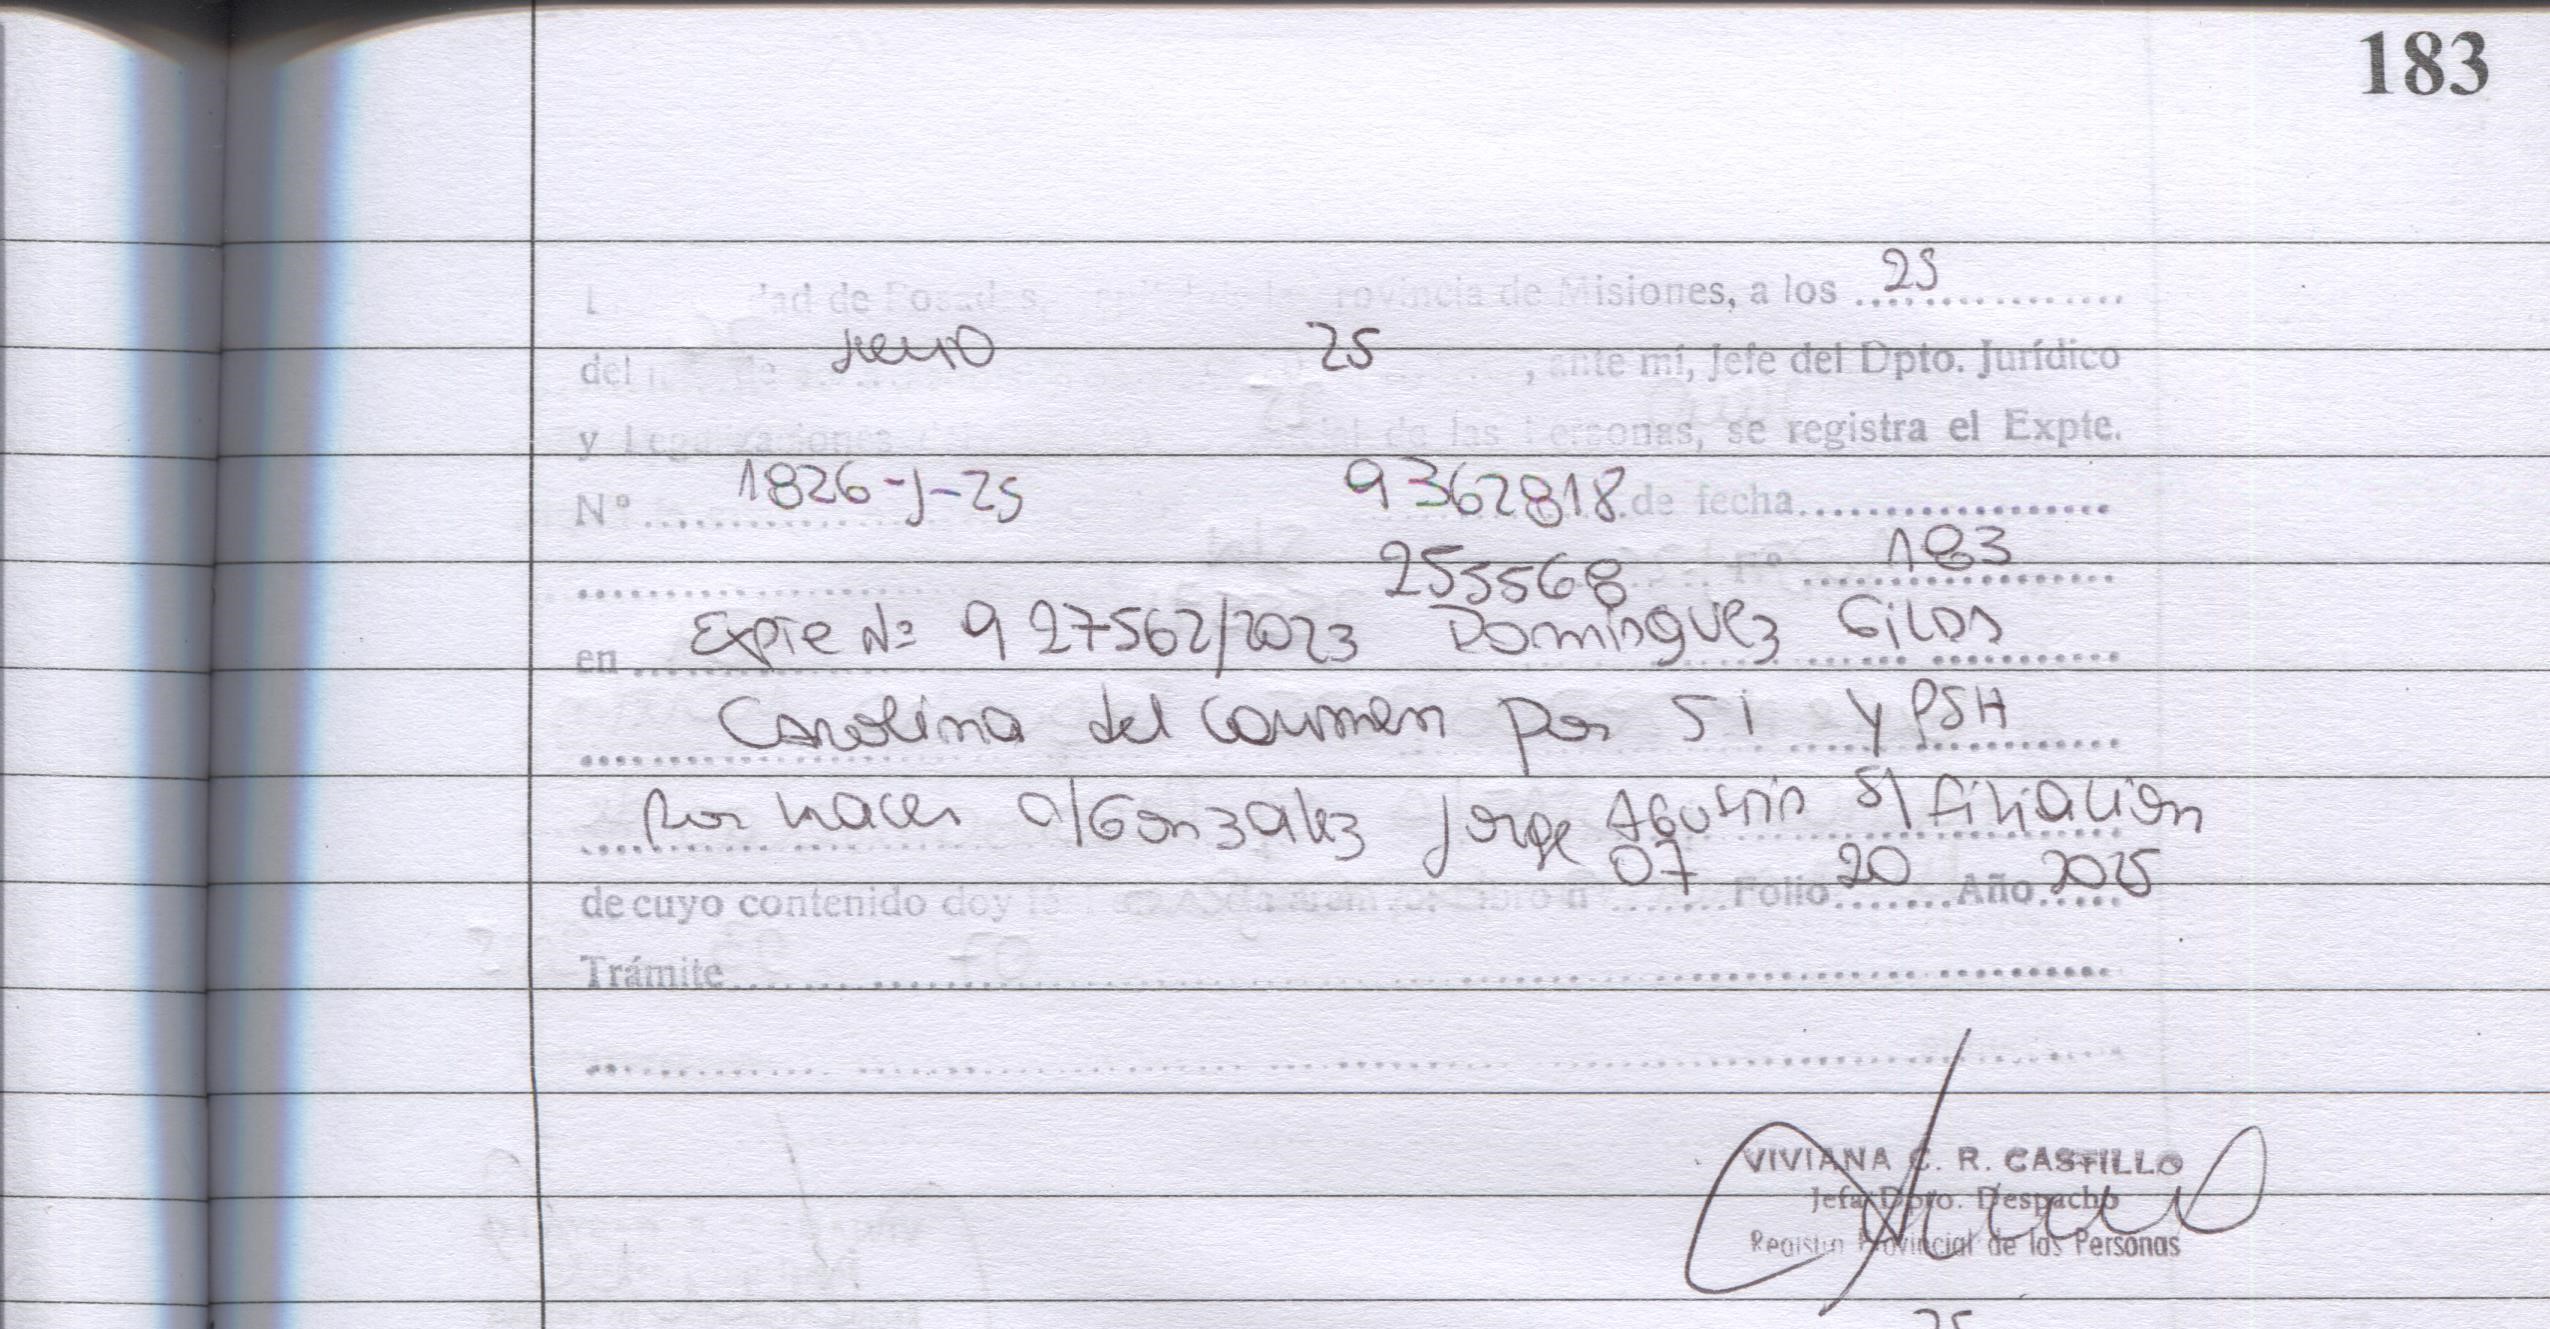 183
dad de Posadas, provincia de Misiones, a los 25
del junio 25, ante mí, Jefe del Dpto. Jurídico
y Legalizaciones de las Personas, se registra el Expte.
Nº 1826-J-25 9362818 de fecha
255568 Nº 183
en Expte Nº 927562/2023 Dominguez
Carolina del Carmen por si y PSH
Por nacer c/ Gonzalez Jorge Agustin s/ filiación
de cuyo contenido doy fé 07 Folio 20 Año 2025
Trámite
VIVIANA C. R. CASTILLO
Jefa Dpto. Despacho
Registro Provincial de las Personas
25